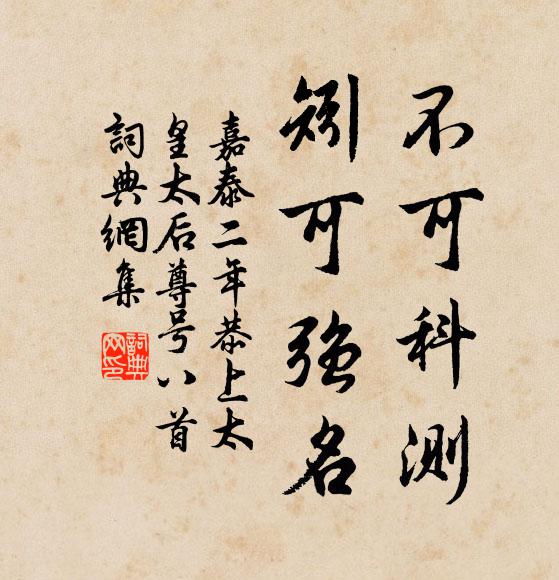 不可科測
矧可強名
嘉泰二年恭上太
皇太后尊号八首
詞典網集
詞典
网印